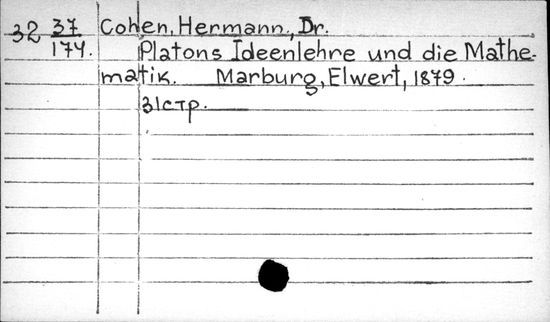 32 37/174. Cohen, Hermann, Dr.
Platons Ideenlehre und die Mathe-
matik. Marburg, Elwert, 1879.
31стр.